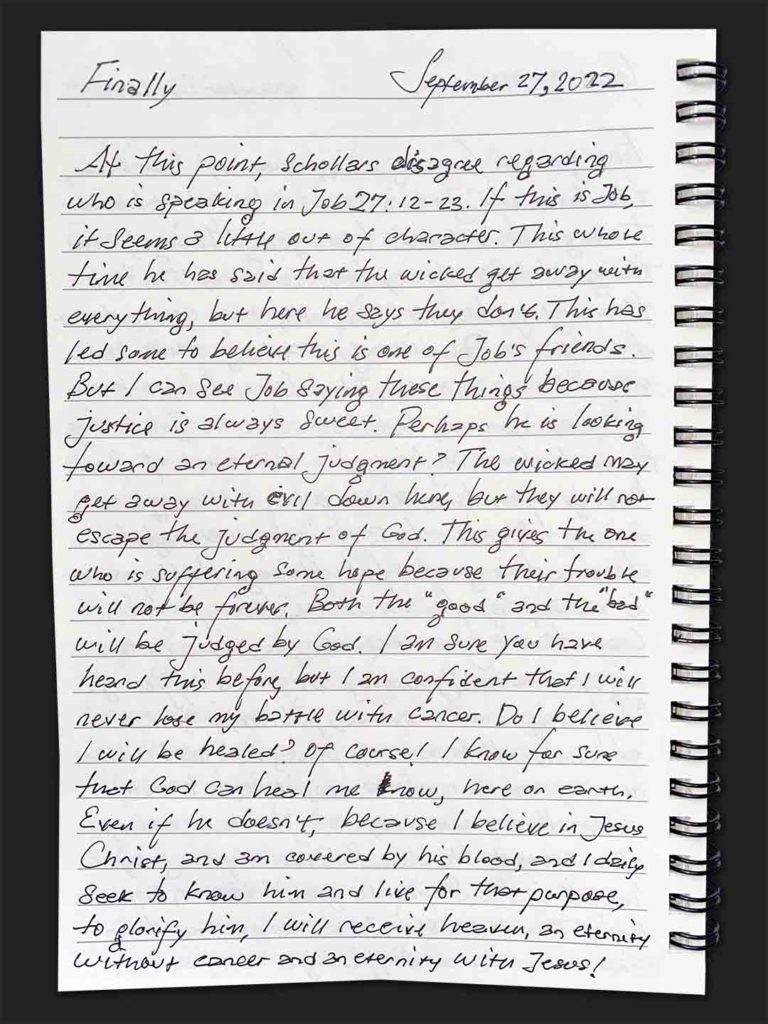 Finally September 27, 2022
At this point, schollars disagree regarding
who is speaking in Job 27:12-23. If this is Job,
it seems a little out of character. This whole
time he has said that the wicked get away with
everything, but here he says they don't. This has
led some to believe this is one of Job's friends.
But I can see Job saying these things because
justice is always sweet. Perhaps he is looking
toward an eternal judgment? The wicked may
get away with evil down here, but they will not
escape the judgment of God. This gives the one
who is suffering some hope because their trouble
will not be forever. Both the "good" and the "bad"
will be judged by God. I am sure you have
heard this before, but I am confident that I will
never lose my battle with cancer. Do I believe
I will be healed? Of course! I know for sure
that God can heal me now, here on earth.
Even if he doesn't, because I believe in Jesus
Christ, and am covered by his blood, and I daily
seek to know him and live for that purpose,
to glorify him, I will receive heaven, an eternity
without cancer and an eternity with Jesus!